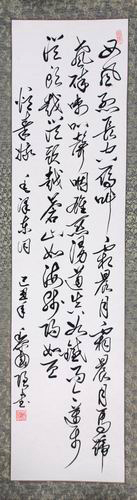 西风烈长空雁叫霜晨月霜晨月马蹄
声碎喇叭声咽雄关漫道真如铁而今迈步
从头越从头越苍山如海残阳如血
忆秦娥 毛泽东词
己丑年